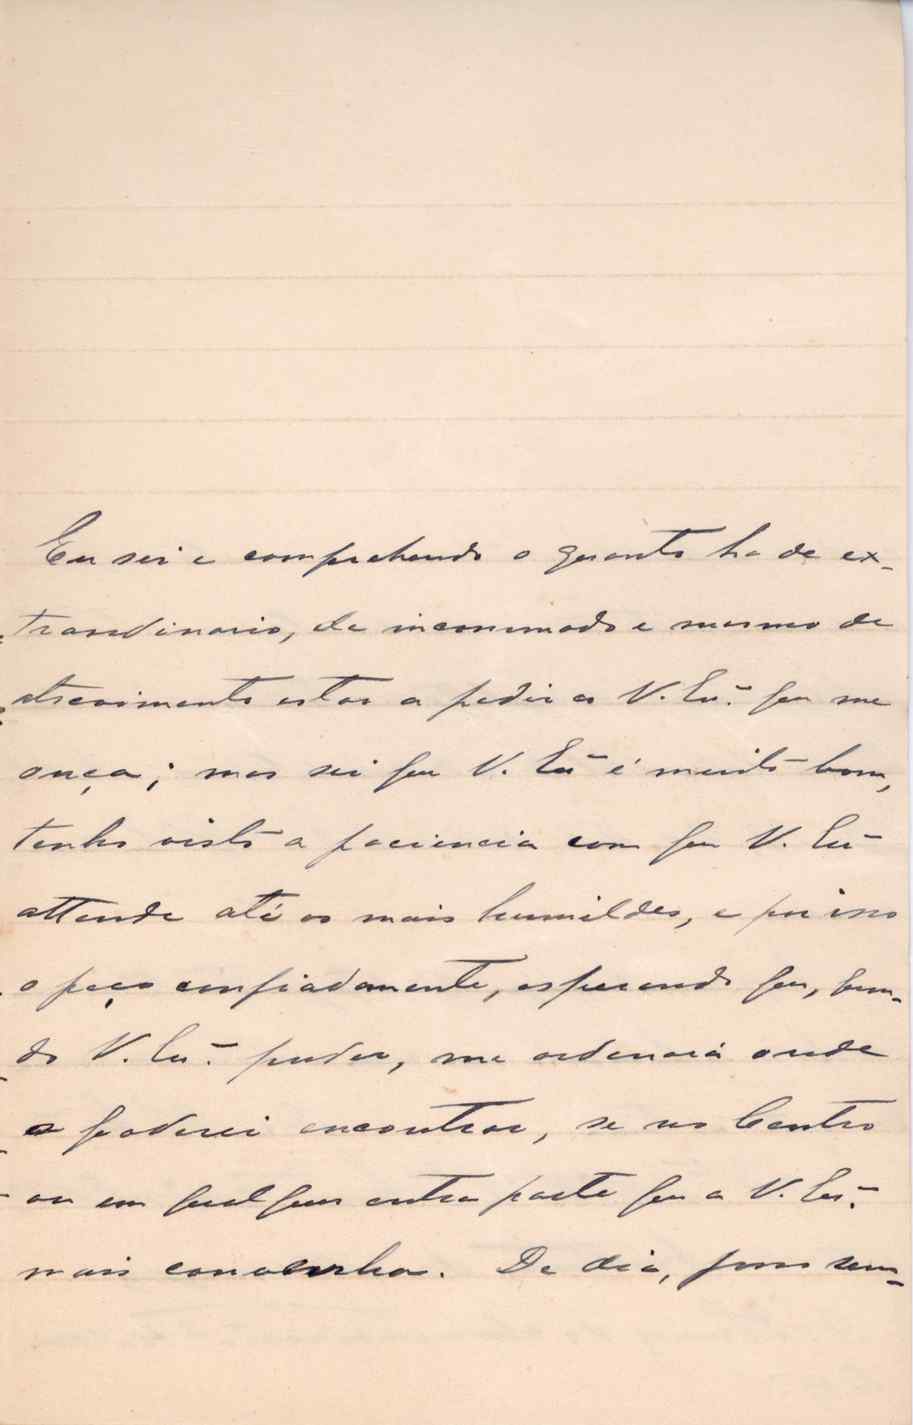 Eu sei e comprehendo o quanto ha de ex-
traordinario, de incommodo e mesmo de
atrevimento estar a pedir a V. Exª. que me
ouça; mas sei que V. Exª é muito bom,
tenho visto a paciencia com que V. Exª
attende até os mais humildes, e por isso
o peço confiadamente, esperando que,
do V. Exª. puder, me ordenará onde
o poderei encontrar, se no Centro
ou em qualquer outra parte que a V. Exª.
mais convenha. De dia, posso sem-